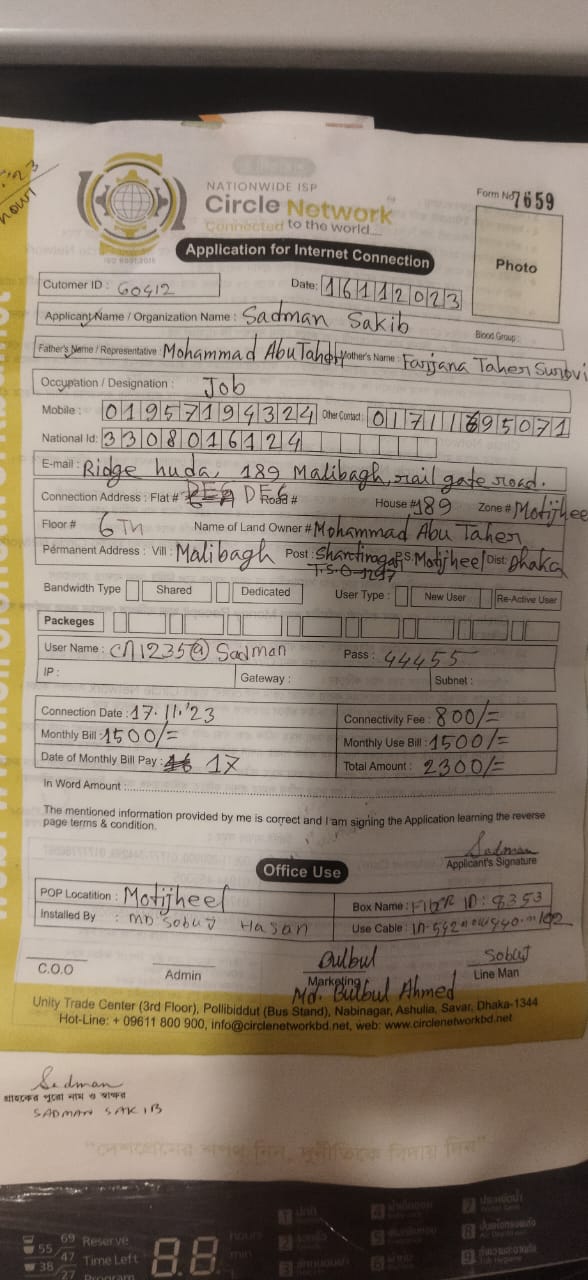 NATIONWIDE ISP
Circle Network
Connected to the world....
ISO 9001:2015
Form No 7659
Application for Internet Connection
Photo
Cutomer ID : 60412
Date: 16112023
Applicant Name / Organization Name : Sadman Sakib
Blood Group :
Father's Name / Representative : Mohammad Abu Taher Mother's Name : Farjana Taher
Occupation / Designation : Job
Mobile : 01957194324 Other Contact : 01711695071
National Id: 3308016124
E-mail : Ridge huda, 189 Malibagh, rail gate road.
Connection Address : Flat # DEG Road # House # 189 Zone # Motijheel
Floor # 6Th Name of Land Owner # Mohammad Abu Taher
Permanent Address : Vill : Malibagh Post : Shantinagar P.S. Motijheel Dist: Dhaka
T.S.O-1217
Bandwidth Type Shared Dedicated User Type : New User Re-Active User
Packeges
User Name : Cn1235@Sadman Pass : 44455
IP : Gateway : Subnet :
Connection Date : 17.11.'23 Connectivity Fee : 800/=
Monthly Bill : 1500/= Monthly Use Bill : 1500/=
Date of Monthly Bill Pay : 17 Total Amount : 2300/=
In Word Amount :
The mentioned information provided by me is correct and I am signing the Application learning the reverse
page terms & condition.
Sadman
Applicant's Signature
Office Use
POP Locatition : Motijheel Box Name : FIBER ID : 8353
Installed By : MD Sobuj Hasan Use Cable :
Bulbul Sobuj
C.O.O Admin Marketing Line Man
Md. Bulbul Ahmed
Unity Trade Center (3rd Floor), Pollibiddut (Bus Stand), Nabinagar, Ashulia, Savar, Dhaka-1344
Hot-Line: + 09611 800 900, info@circlenetworkbd.net, web: www.circlenetworkbd.net
Sadman
গ্রাহকের পুরো নাম ও স্বাক্ষর
SADMAN SAKIB
"দেশপ্রেমের শপথ নিন, দুর্নীতিকে বিদায় দিন"
69 Reserve
55
47 Time Left
38
27 Program
88
hours
min